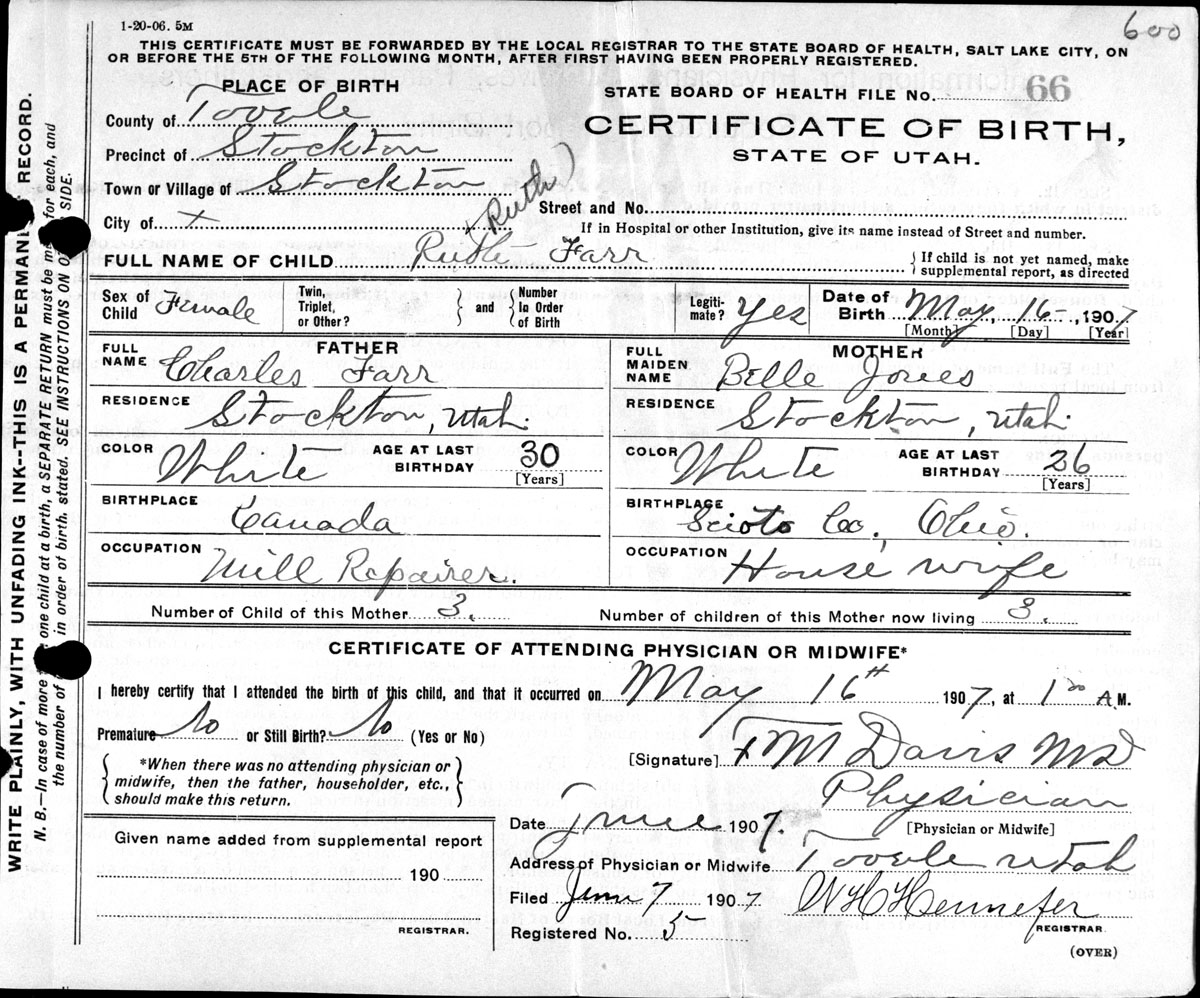 1-20-06. 5M
600
THIS CERTIFICATE MUST BE FORWARDED BY THE LOCAL REGISTRAR TO THE STATE BOARD OF HEALTH, SALT LAKE CITY, ON
OR BEFORE THE 5TH OF THE FOLLOWING MONTH, AFTER FIRST HAVING BEEN PROPERLY REGISTERED.
PLACE OF BIRTH
STATE BOARD OF HEALTH FILE No. 66
County of Tooele
CERTIFICATE OF BIRTH,
STATE OF UTAH.
Precinct of Stockton
Town or Village of Stockton
(Ruth)
Street and No.
City of x
If in Hospital or other Institution, give its name instead of Street and number.
FULL NAME OF CHILD Ruth Farr
If child is not yet named, make
supplemental report, as directed
Sex of Child Female
Twin, Triplet, or Other? and Number In Order of Birth
Legitimate? Yes
Date of Birth May, 16, 1907
[Month] [Day] [Year]
FATHER
FULL NAME Charles Farr
RESIDENCE Stockton, Utah.
COLOR White AGE AT LAST BIRTHDAY 30
[Years]
BIRTHPLACE Canada
OCCUPATION Mill Repairer.
MOTHER
FULL MAIDEN NAME Belle Jones
RESIDENCE Stockton, Utah.
COLOR White AGE AT LAST BIRTHDAY 26
[Years]
BIRTHPLACE Scioto Co., Ohio.
OCCUPATION House wife
Number of Child of this Mother 3.
Number of children of this Mother now living 3.
CERTIFICATE OF ATTENDING PHYSICIAN OR MIDWIFE*
I hereby certify that I attended the birth of this child, and that it occurred on May 16th 1907, at 1 00 A M.
Premature No or Still Birth? No (Yes or No)
[Signature] F M Davis MD
*When there was no attending physician or
midwife, then the father, householder, etc.,
should make this return.
Physician
[Physician or Midwife]
Date June 1907.
Address of Physician or Midwife Tooele Utah
Filed June 7 1907 W H Hennefer
REGISTRAR.
Registered No. 5
(OVER)
Given name added from supplemental report
190
REGISTRAR.
WRITE PLAINLY, WITH UNFADING INK--THIS IS A PERMANE RECORD.
N. B.—In case of more one child at a birth, a SEPARATE RETURN must be ma for each, and
the number of in order of birth. stated. SEE INSTRUCTIONS ON O SIDE.